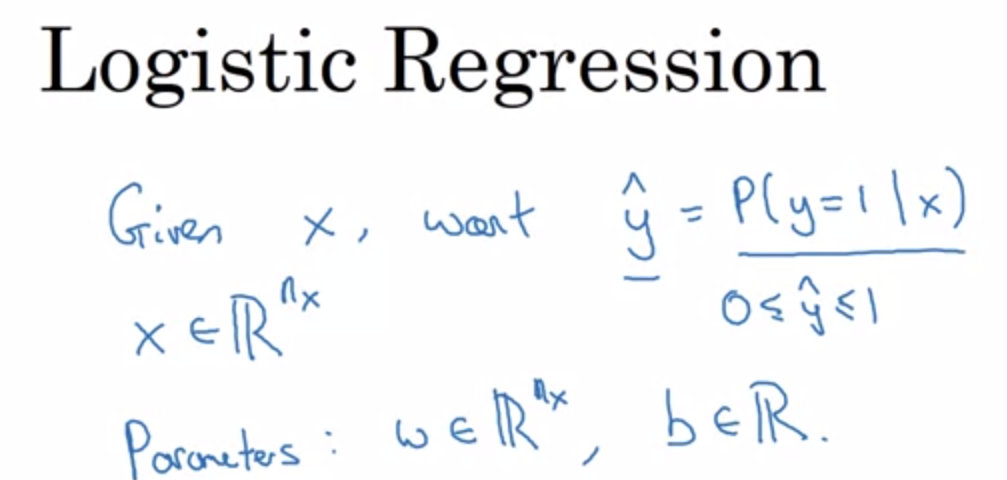 Logistic Regression
Given x, want ŷ = P(y=1|x)
x ∈ ℝⁿˣ 0 ≤ ŷ ≤ 1
Parameters: w ∈ ℝⁿˣ, b ∈ ℝ.